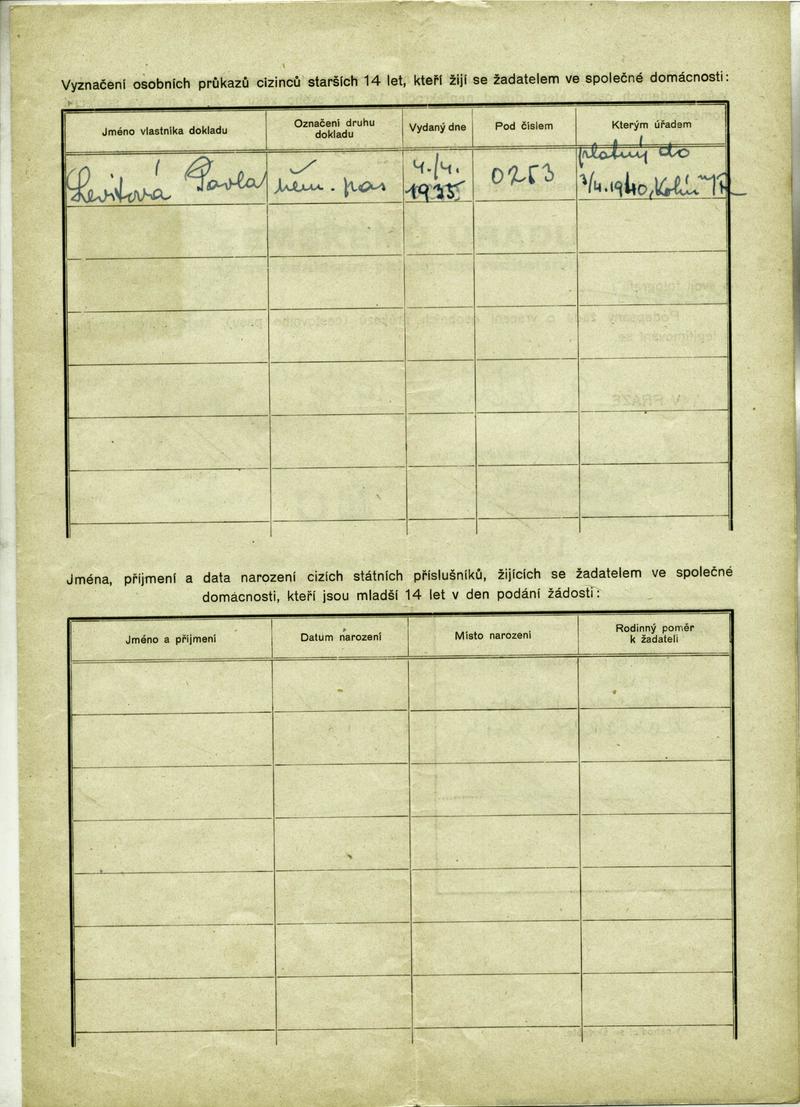 Vyznačení osobních průkazů cizinců starších 14 let, kteří žijí se žadatelem ve společné domácnosti:
Jméno vlastníka dokladu
Označení druhu
dokladu
Vydaný dne
Pod číslem
Kterým úřadem
Levitová Pavla
něm. pas
4./4.
1935
0253
platný do
3/4.1940, Kolín
Jména, příjmení a data narození cizích státních příslušníků, žijících se žadatelem ve společné
domácnosti, kteří jsou mladší 14 let v den podání žádosti:
Jméno a příjmení
Datum narození
Místo narození
Rodinný poměr
k žadateli